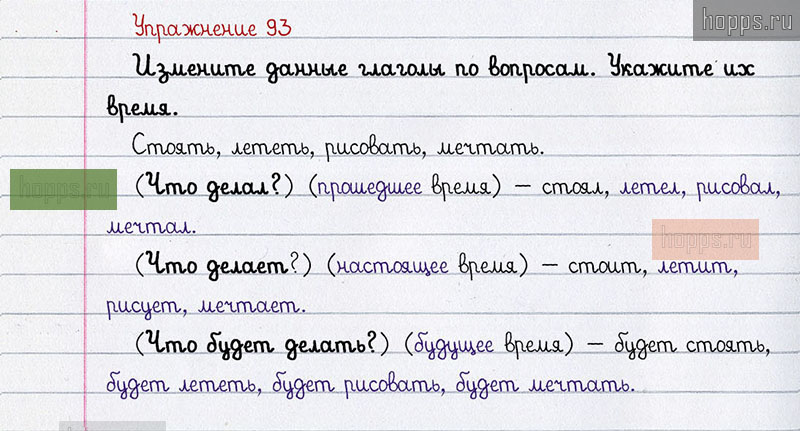 hopps.ru
Упражнение 93
Измените данные глаголы по вопросам. Укажите их
время.
Стоять, лететь, рисовать, мечтать.
hopps.ru
(Что делал?) (прошедшее время) – стоял, летел, рисовал,
мечтал.
hopps.ru
(Что делает?) (настоящее время) – стоит, летит,
рисует, мечтает.
(Что будет делать?) (будущее время) – будет стоять,
будет лететь, будет рисовать, будет мечтать.